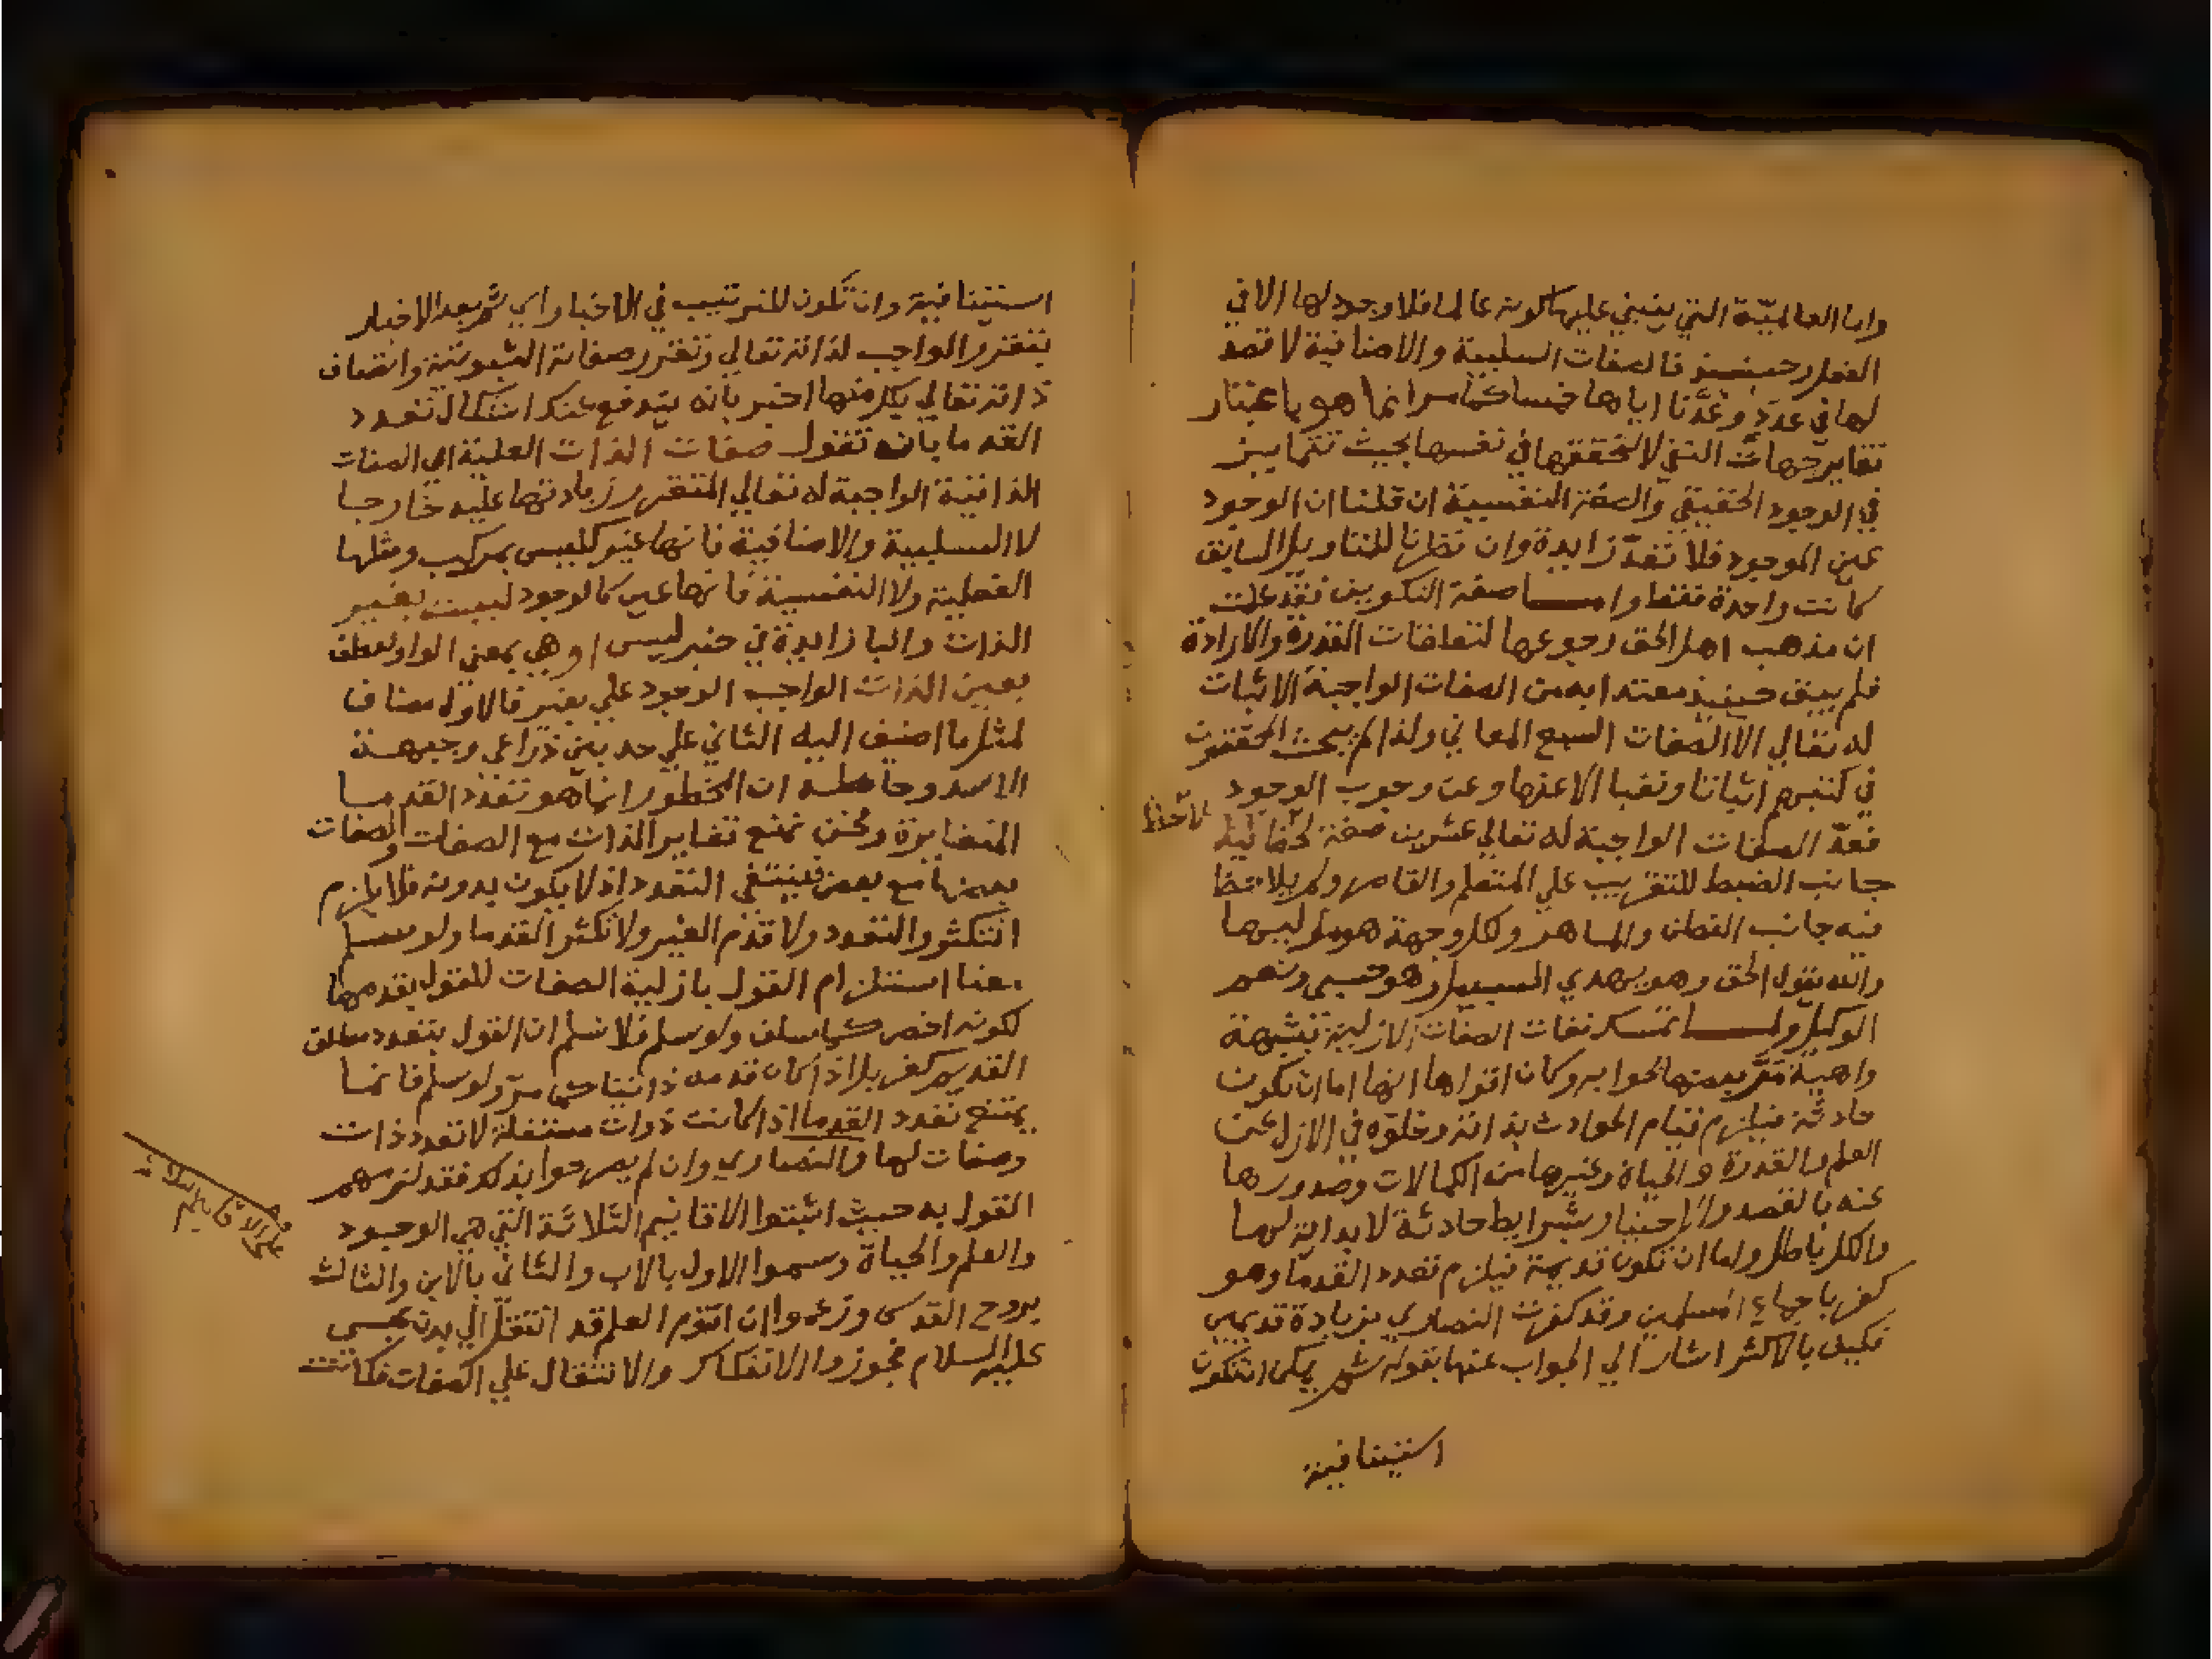 واما العالميّة التي ينبني عليها كونه عالما فلا وجود لها الا في
العقل وحينئذ فالصفات السلبية والاضافية لا تعد
لها في عدد وعدنا اياها خمسا كما مر انما هو باعتبار
تغاير جهات النفي لا لتحققها في نفسها بحيث تتمايز
في الوجود الحقيقي والصفة النفسية ان قلنا ان الوجود
عين الموجود فلا تعدّ زايدة وان نظرنا للتاويل السابق
كانت واحدة فقط واما صفة التكوين فقد علمت
ان مذهب اهل الحق رجوعها لتعلقات القدرة والارادة
فلم يبق حينيذ معتدا به من الصفات الواجبة الاثبات
له تعالي الا الصفات السبع المعاني ولذا لم يبحث المحققون
في كتبهم اثباتا ونفيا الا عنها وعن وجوب الوجود
فعدّ الصفات الواجبة له تعالي عشرين صفة
جانب الضبط للتقريب علي المتعلم والقاصر ولم يلاحظ
فيه جانب الفطن والماهر ولكل وجهة هو موليها
والله يقول الحق وهو يهدي السبيل وهو حسبي ونعم
الوكيل ولما تمسك نفات الصفات الازلية بشبهة
واهية مرّ بعضها بجوابه وكان اقواها انها اما ان تكون
حادثة فيلزم قيام الحوادث بذاته وخلوّه في الازل عن
العلم والقدرة والحياة وغيرها من الكمالات وصدورها
عنه بالقصد والاختيار وشرايط حادثة لا بداية لها
والكل باطل واما ان تكون قديمة فيلزم تعدد القدما وهو
كفر باجماع المسلمين وقد كفرت النصاري بزيادة قديمين
فكيف بالاكثر اشار الي الجواب عنها بقوله ثم يمكن ان تكون
استينافية
استينافية وان تكون للترتيب في الاخبار اي ثم بعد الاخبار
بتقرر الواجب لذاته تعالي وتقرر صفاته الثبوتية واتصاف
ذاته تعالي بكل منها اخبر بانه يندفع عنك اشكال تعدد
القدما بان تقول صفات الذات العلية اي الصفات
الذاتية الواجبة له تعالي المتقرر زيادتها عليه خارجا
لا السلبية والاضافية فانها غير كليس بمركب ومثلها
الفعلية ولا النفسية فانها عين كالوجود ليست بغير
الذات والبا زايدة في خبر ليس او هي بمعني الواو لعطف
بعين الذات الواجب الوجود علي بغير فالاول مضاف
لمثل ما اضيف اليه الثاني علي حد بين ذراعي وجبهة
الاسد وحاصله ان المحظور انما هو تعدد القدما
المتغايرة ونحن نمنع تغاير الذات مع الصفات والصفات
بعضها مع بعض فينتفي التعدد اذ لا يكون بدونه فلا يلزم
التكثر والتعدد ولا قدم الغير ولا تكثر القدما ولو سلم
معنا استلزام القول بازلية الصفات للقول بقدمها
لكونه اخص كما سلف ولو سلم فلا نسلم ان القول بتعدد مطلق
القديم كفر بل اذا كان قدمه ذاتيا كما مرّ ولو سلم فانما
يمتنع تعدد القدما اذا كانت ذوات مستقلة لا تعدد ذات
وصفات لها والنصاري وان لم يصرحوا بذلك فقد لزمهم
القول به حيث اثبتوا الاقانيم الثلاثة التي هي الوجود
والعلم والحياة وسموا الاول بالاب والثاني بالابن والثالث
بروح القدس وزعموا ان اقنوم العلم قد انتقل الي بدن عيسي
عليه السلام فجوزوا الانفكاك والانتقال علي الصفات فكانت